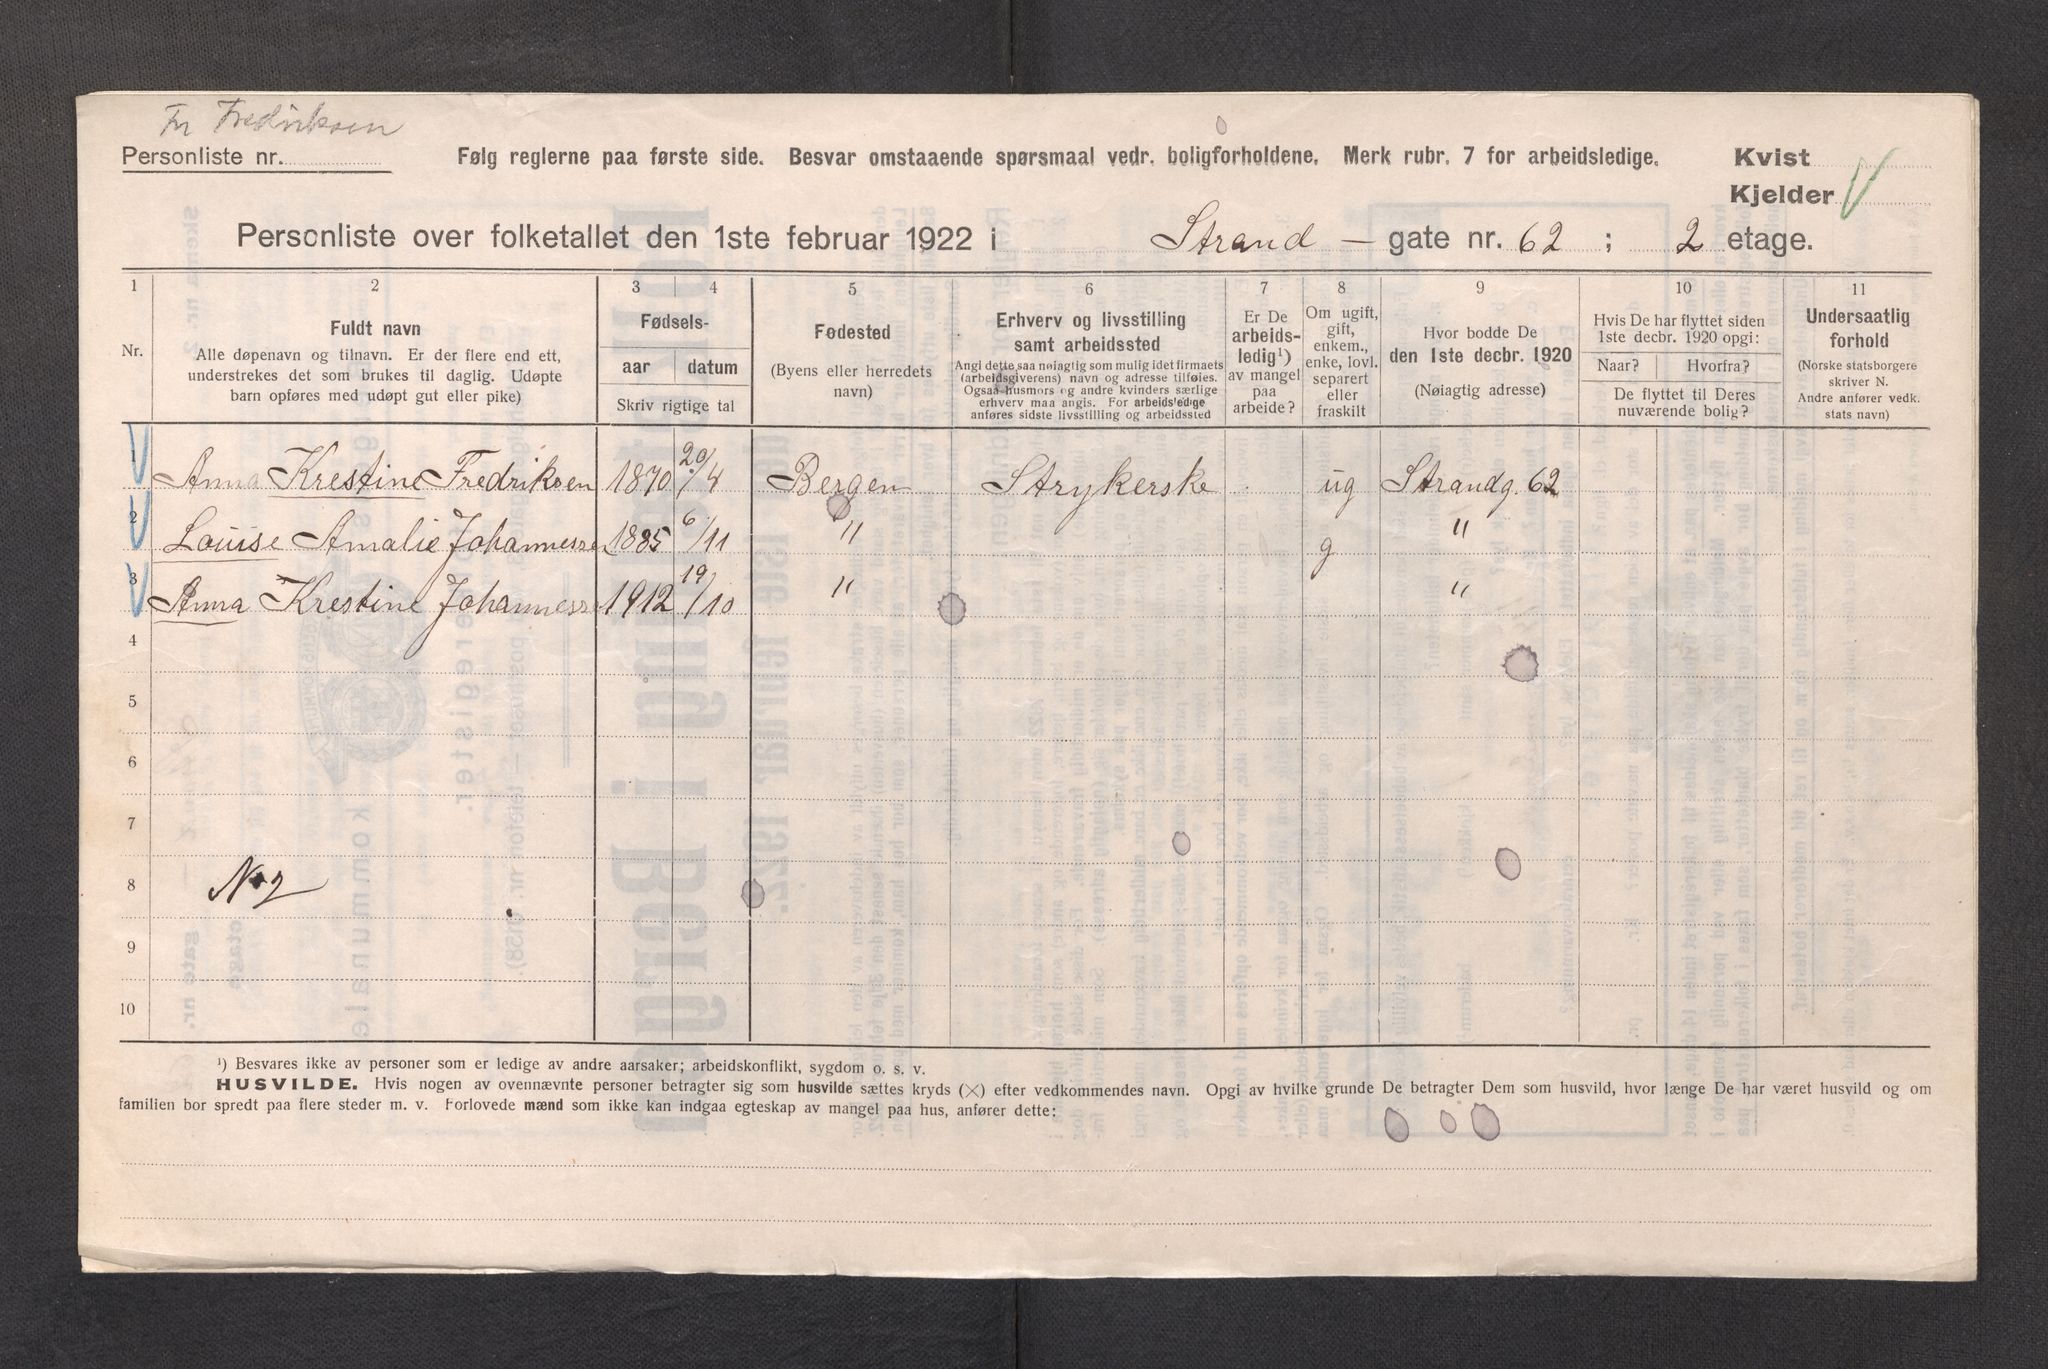 Fr Fredriksen
Personliste nr. Følg reglerne paa første side. Besvar omstaaende spørsmaal vedr. boligforholdene. Merk rubr. 7 for arbeidsledige. Kvist
Kjelder
Personliste over folketallet den 1ste februar 1922 i Strand - gate nr. 62 ; 2 etage.
1 2 3 4 5 6 7 8 9 10 11
Nr.
Fuldt navn
Alle døpenavn og tilnavn. Er der flere end ett,
understrekes det som brukes til daglig. Udøpte
barn opføres med udøpt gut eller pike)
Fødsels-
aar datum
Skriv rigtige tal
Fødested
(Byens eller herredets
navn)
Erhverv og livsstilling
samt arbeidssted
Angi dette saa nøiagtig som mulig idet firmaets
(arbeidsgiverens) navn og adresse tilføies.
Ogsaa husmors og andre kvinders særlige
erhverv maa angis. For arbeidsledige
anføres sidste livsstilling og arbeidssted
Er De
arbeids-
ledig¹)
av mangel
paa
arbeide?
Om ugift,
gift,
enkem.,
enke, lovl.
separert
eller
fraskilt
Hvor bodde De
den 1ste decbr. 1920
(Nøiagtig adresse)
Hvis De har flyttet siden
1ste decbr. 1920 opgi:
Naar? Hvorfra?
De flyttet til Deres
nuværende bolig?
Undersaatlig
forhold
(Norske statsborgere
skriver N.
Andre anfører vedk.
stats navn)
1 Anna Krestine Fredriksen 1870 20/4 Bergen Strykerske ug Strandg. 62
2 Louise Amalie Johannessen 1885 6/11 " g "
3 Anna Krestine Johannessen 1912 19/10 " "
4
5
6
7
8 No 2
9
10
¹) Besvares ikke av personer som er ledige av andre aarsaker; arbeidskonflikt, sygdom o. s. v.
HUSVILDE. Hvis nogen av ovennævnte personer betragter sig som husvilde sættes kryds (×) efter vedkommendes navn. Opgi av hvilke grunde De betragter Dem som husvild, hvor længe De har været husvild og om
familien bor spredt paa flere steder m. v. Forlovede mænd som ikke kan indgaa egteskap av mangel paa hus, anfører dette: